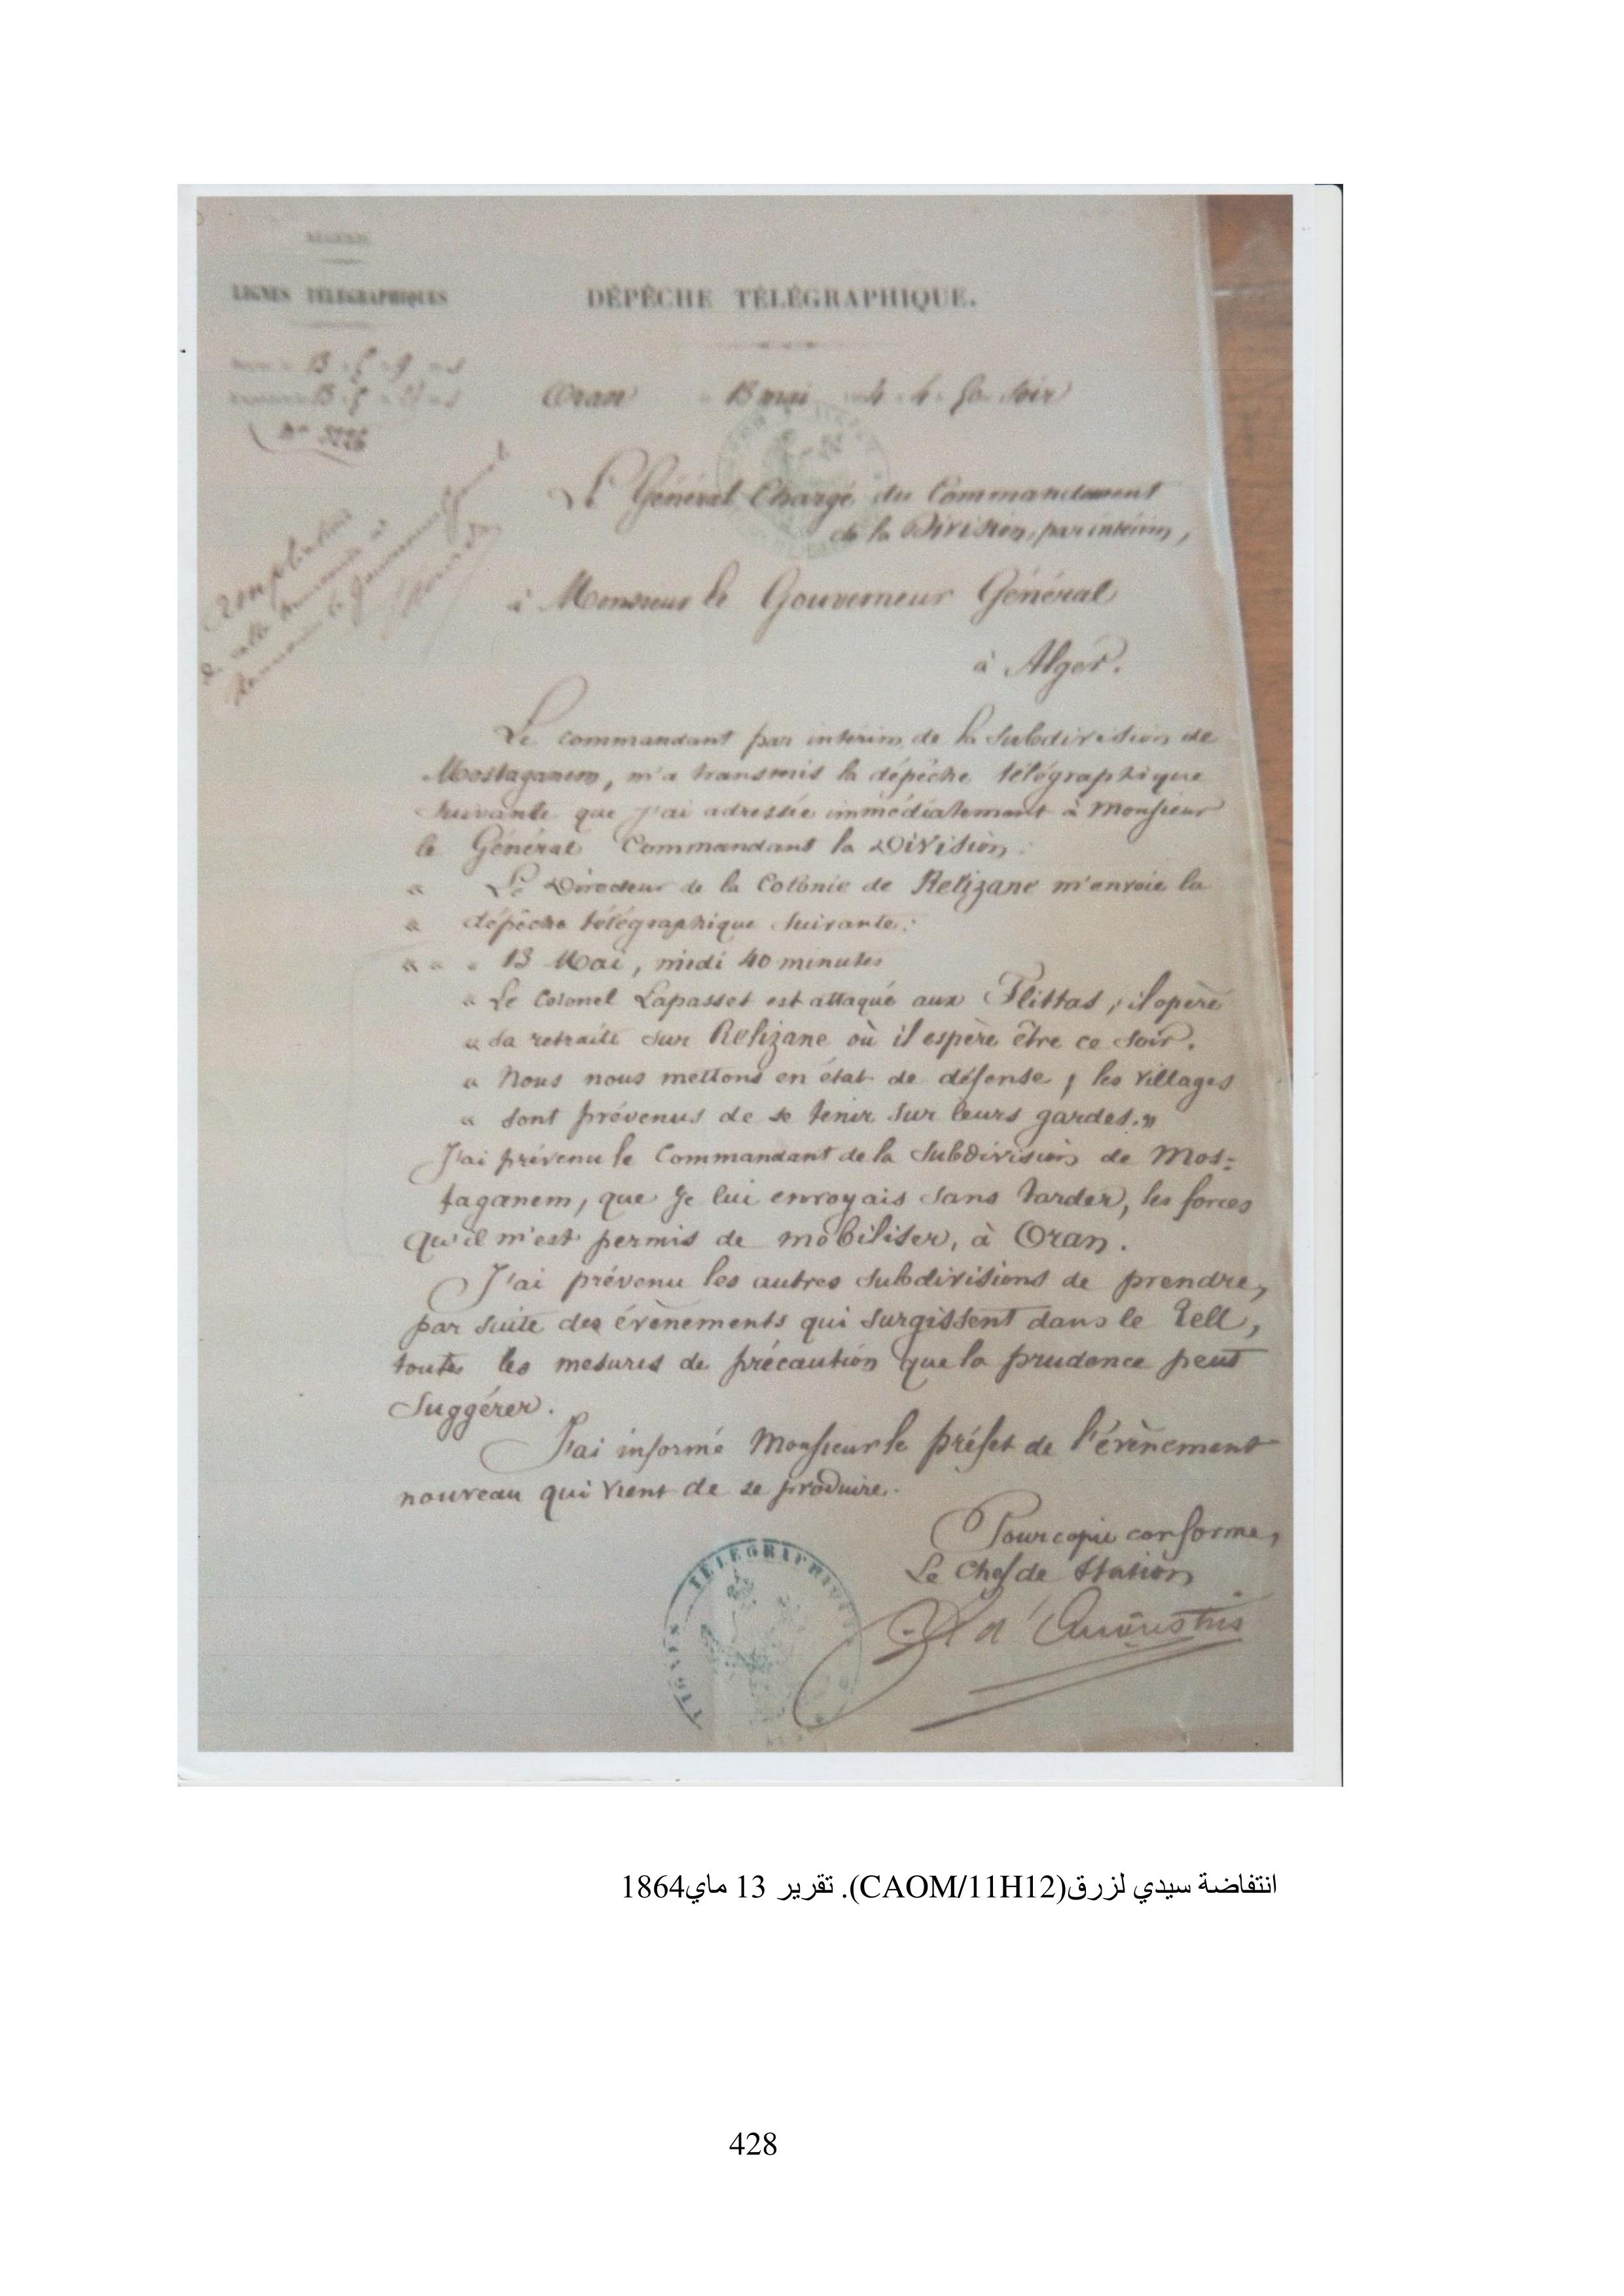 ALGÉRIE
LIGNES TÉLÉGRAPHIQUES
DÉPÊCHE TÉLÉGRAPHIQUE.
Oran 13 mai 4 h 50 soir
Le Général Chargé du Commandement
de la Division, par intérim,
à Monsieur le Gouverneur Général
à Alger.
Le commandant par intérim de la Subdivision de
Mostaganem, m'a transmis la dépêche télégraphique
suivante que j'ai adressée immédiatement à Monsieur
le Général Commandant la Division :
« Le Directeur de la Colonie de Relizane m'envoie la
« dépêche télégraphique suivante :
« « « 13 Mai, midi 40 minutes
« Le Colonel Lapasset est attaqué aux Flittas ; il opère
« sa retraite sur Relizane où il espère être ce soir.
« Nous nous mettons en état de défense ; les villages
« sont prévenus de se tenir sur leurs gardes. »
J'ai prévenu le Commandant de la Subdivision de Mos=
taganem, que je lui envoyais sans tarder, les forces
qu'il m'est permis de mobiliser, à Oran.
J'ai prévenu les autres subdivisions de prendre,
par suite des évènements qui surgissent dans le Tell,
toutes les mesures de précaution que la prudence peut
suggérer.
J'ai informé Monsieur le préfet de l'évènement
nouveau qui vient de se produire.
Pour copie conforme,
Le Chef de Station
LIGNES TÉLÉGRAPHIQUES
انتفاضة سيدي لزرق(CAOM/11H12). تقرير 13 ماي1864
428